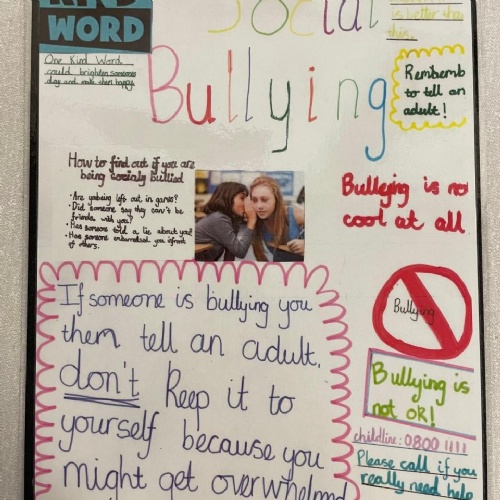 WORD
One Kind Word
could brighten someones
day and make them happy.
Social
Bullying
is better than
this.
Rememb
to tell an
adult!
How to find out if you are
being socialy bullied
• Are you being left out in games?
• Did someone say they can't be
friends with you?
• Has someone told a lie about you?
• Has someone embarrassed you infront
of others.
Bulleying is no
cool at all
Bullying
If someone is bullying you
them tell an adult.
don't keep it to
yourself because you
might get overwhelmed
Bullying is
not OK!
childline: 0800 1111
Please call if you
really need help